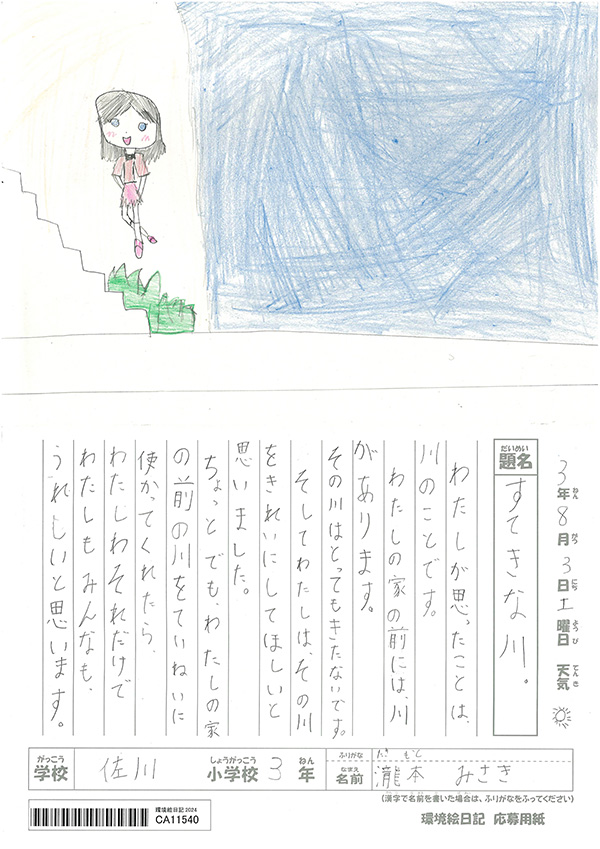 3年ねん8月がつ3日にち土曜日ようび 天気てんき
題名だいめい すてきな川。
わたしが思ったことは、
川のことです。
わたしの家の前には、川
があります。
その川はとってもきたないです。
そしてわたしは、その川
をきれいにしてほしいと
思いました。
ちょっとでも、わたしの家
の前の川をていねいに
使かってくれたら、
わたしわそれだけで
わたしもみんなも、
うれしいと思います。
がっこう 学校 佐川 しょうがっこう 小学校 3 ねん 年
ふりがな もと
なまえ 名前 瀧本 みさき
(漢字で名前を書いた場合は、ふりがなをふってください)
環境絵日記2024
CA11540
環境絵日記 応募用紙